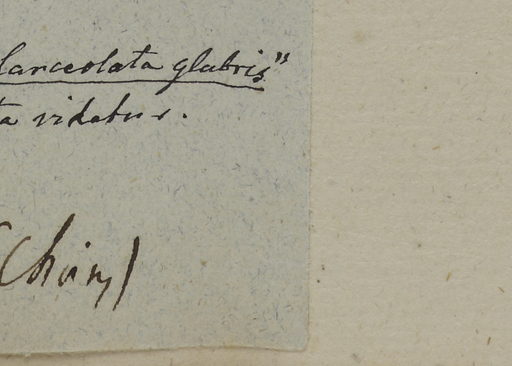 lanceolata glabris"
ta videtur.